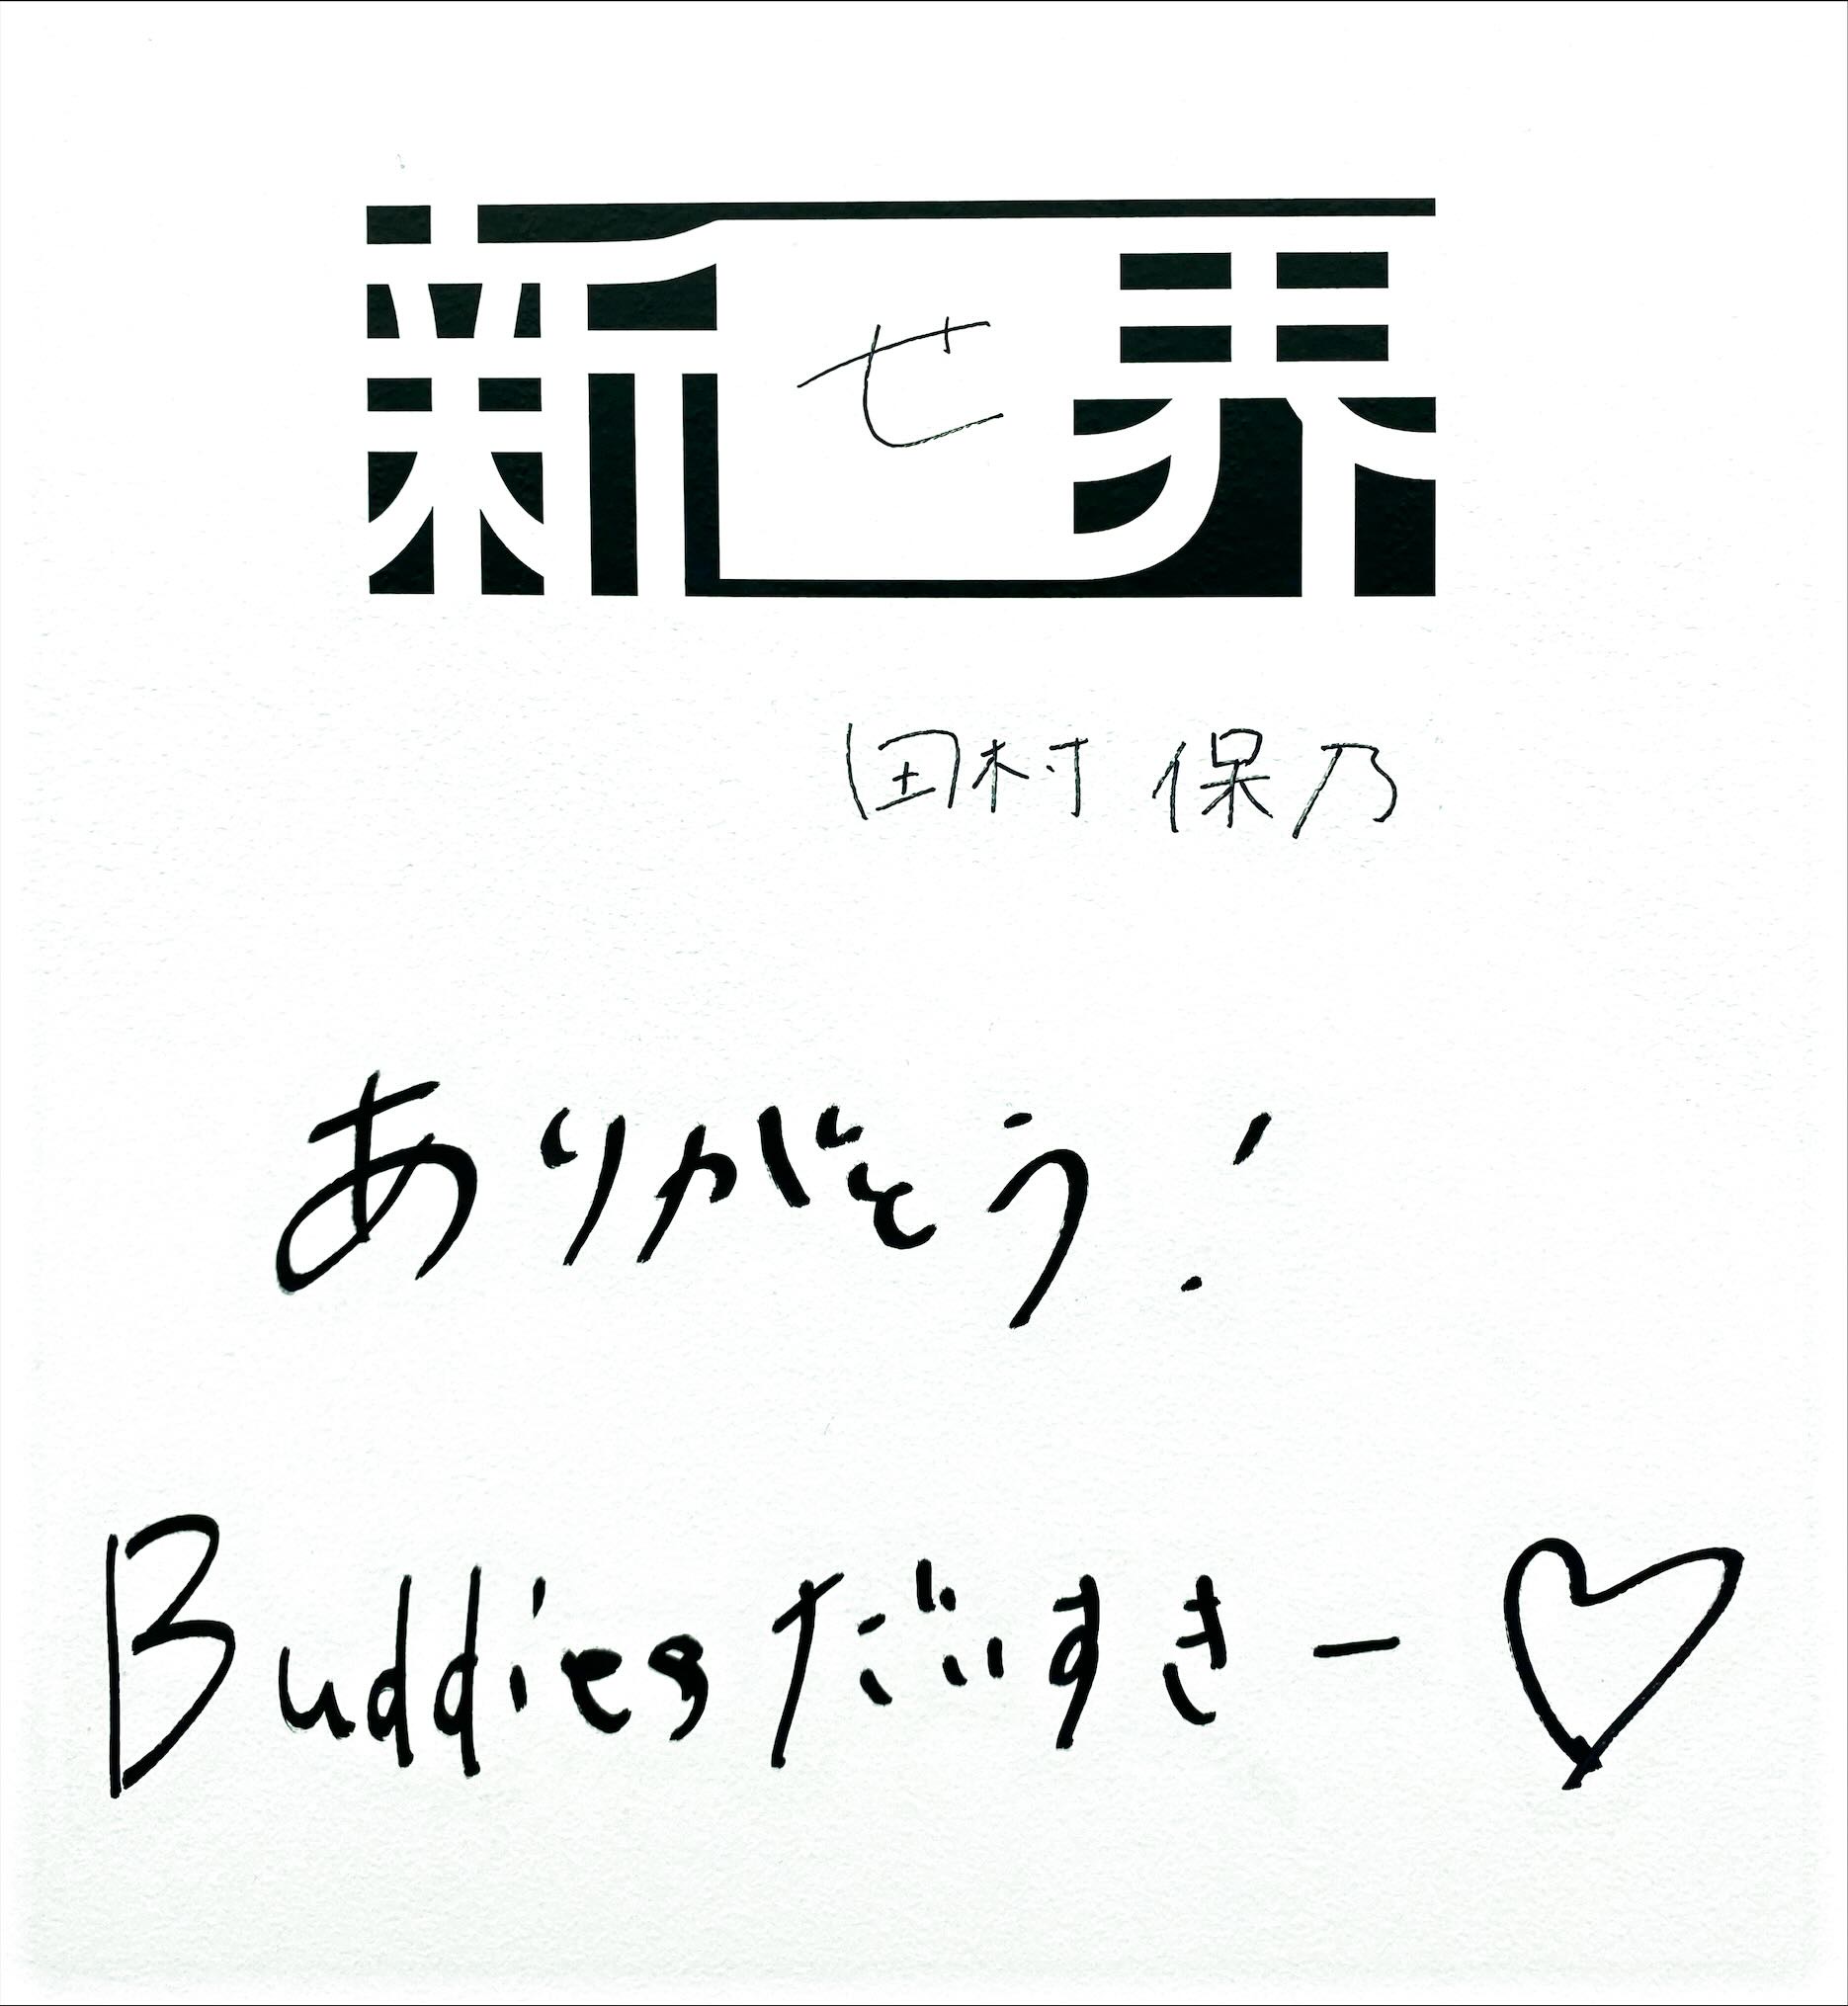 新せ界
田村 保乃
ありがとう!
Buddies だいすきー♡